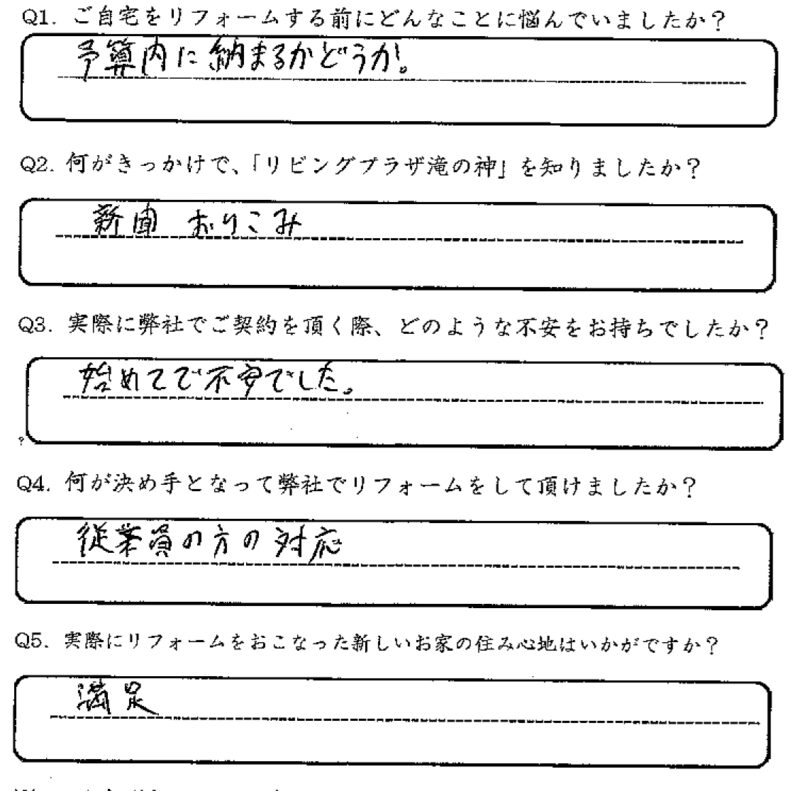 Q1. ご自宅をリフォームする前にどんなことに悩んでいましたか？
予算内に納まるかどうか。
Q2. 何がきっかけで、「リビングプラザ滝の神」を知りましたか？
新聞 おりこみ
Q3. 実際に弊社でご契約を頂く際、どのような不安をお持ちでしたか？
始めてで不安でした。
Q4. 何が決め手となって弊社でリフォームをして頂けましたか？
従業員の方の対応
Q5. 実際にリフォームをおこなった新しいお家の住み心地はいかがですか？
満足